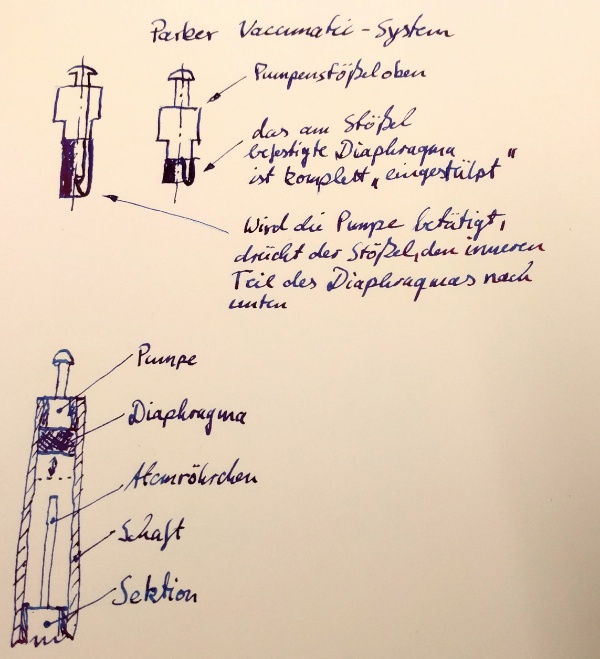 Parker Vacumatic-System
Pumpenstößel oben
das am Stößel
befestigte Diaphragma
ist komplett „eingestülpt"
Wird die Pumpe betätigt,
drückt der Stößel, den inneren
Teil des Diaphragmas nach
unten
Pumpe
Diaphragma
Atemröhrchen
Schaft
Sektion